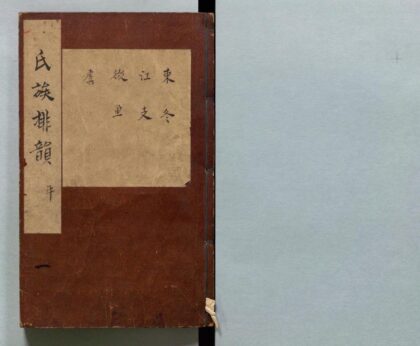 東冬
江支
微魚
虞
氏族排韻 平
一